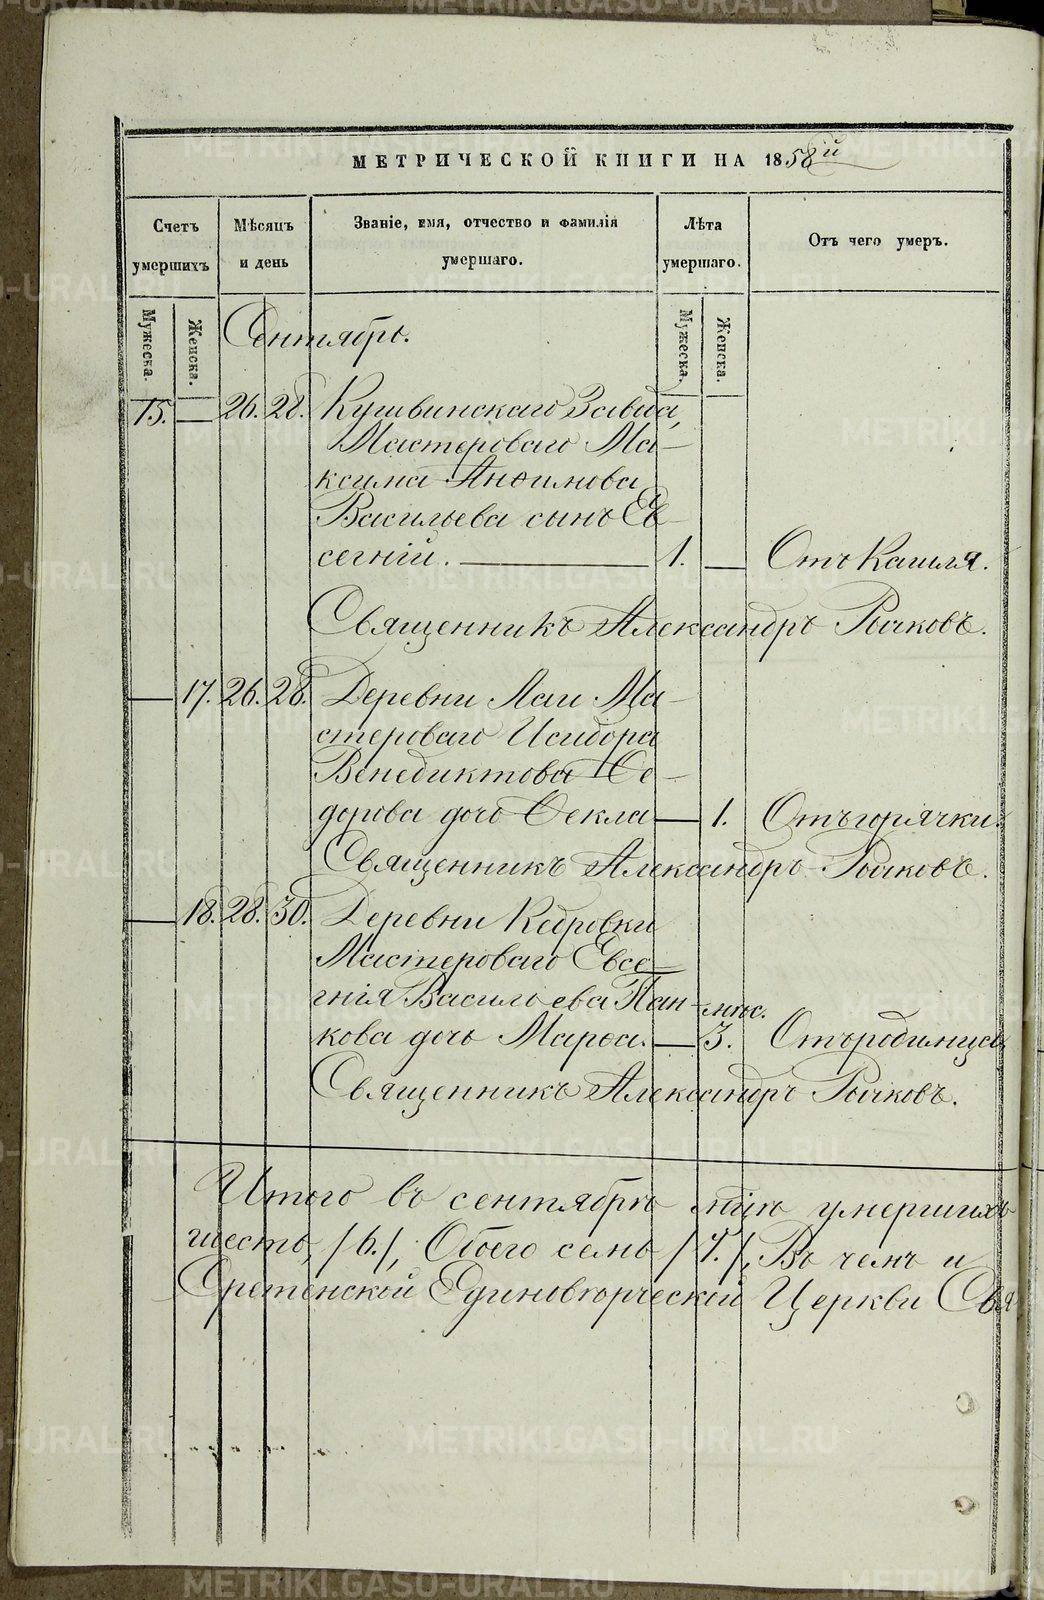 МЕТРИЧЕСКОЙ КНИГИ НА 1858й
Счетъ умершихъ
Мѣсяцъ и день
Званіе, имя, отчество и фамилія умершаго.
Лѣта умершаго.
Отъ чего умеръ.
Мужеска.
Женска.
Мужеска.
Женска.
Сентябрь.
15. — 26. 28. Кушвинскаго Завода,
Мастероваго Ма-
ксима Анѳимова
Васильева сынъ Ев-
сегнiй. — 1. — Отъ Кашля.
Священникъ Александръ Рычковъ.
— 17. 26. 28. Деревни Лаи Ма-
стероваго Исидора
Венедиктова Ѳе-
дорова дочь Ѳекла — 1. Отъ горячки.
Священникъ Александръ Рычковъ.
— 18. 28. 30. Деревни Кедровки
Мастероваго Евсе-
гнія Васильева Пан-
мѣс.
кова дочь Марѳа. — 3. Отъ родимца
Священникъ Александръ Рычковъ.
Итого въ сентябрѣ мцѣ умершихъ
шесть, /6./, Обоего семь /7./, Въ чемъ и
Сретенской Единовѣрческой Церкви Свя
METRIKI.GASO-URAL.RU